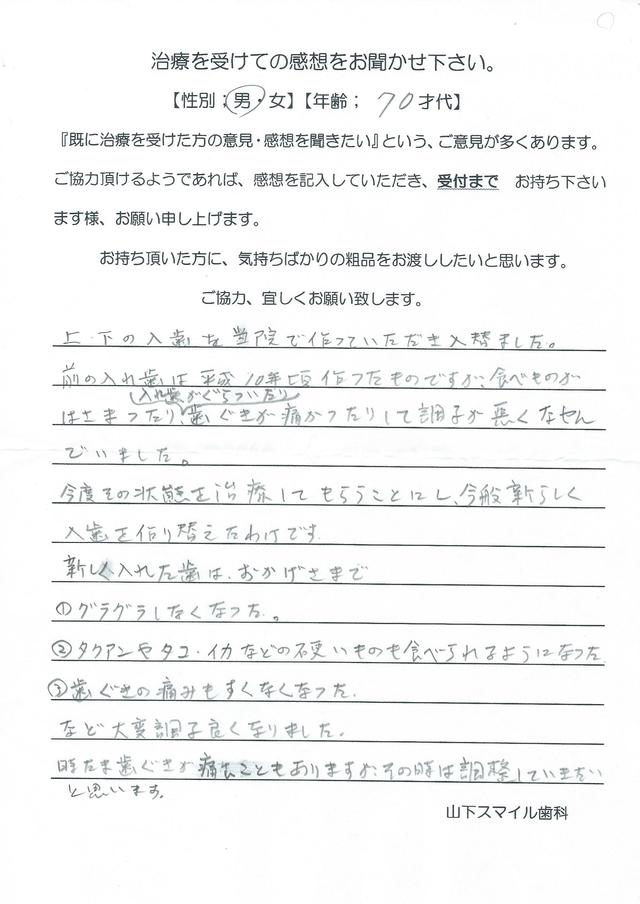 治療を受けての感想をお聞かせ下さい。
【性別；男・女】【年齢；70才代】
『既に治療を受けた方の意見・感想を聞きたい』という、ご意見が多くあります。
ご協力頂けるようであれば、感想を記入していただき、受付まで　お持ち下さい
ます様、お願い申し上げます。
お持ち頂いた方に、気持ちばかりの粗品をお渡ししたいと思います。
ご協力、宜しくお願い致します。
上・下の入歯を当院で作っていただき入替ました。
前の入れ歯は平成10年頃作ったものですが、食べものが
入れ歯がぐらついたり
はさまったり、歯ぐきが痛かったりして調子が悪くなやん
でいました。
今度その状態を治療してもらうことにし、今般新らしく
入歯を作り替えたわけです
新しく入れた歯は、おかげさまで
①グラグラしなくなった。
②タクアンやタコ・イカなどの硬いものも食べられるようになった
③歯ぐきの痛みもすくなくなった。
など大変調子良くなりました。
時たま歯ぐきが痛むこともありますが、その時は調整していきたい
と思います。
山下スマイル歯科